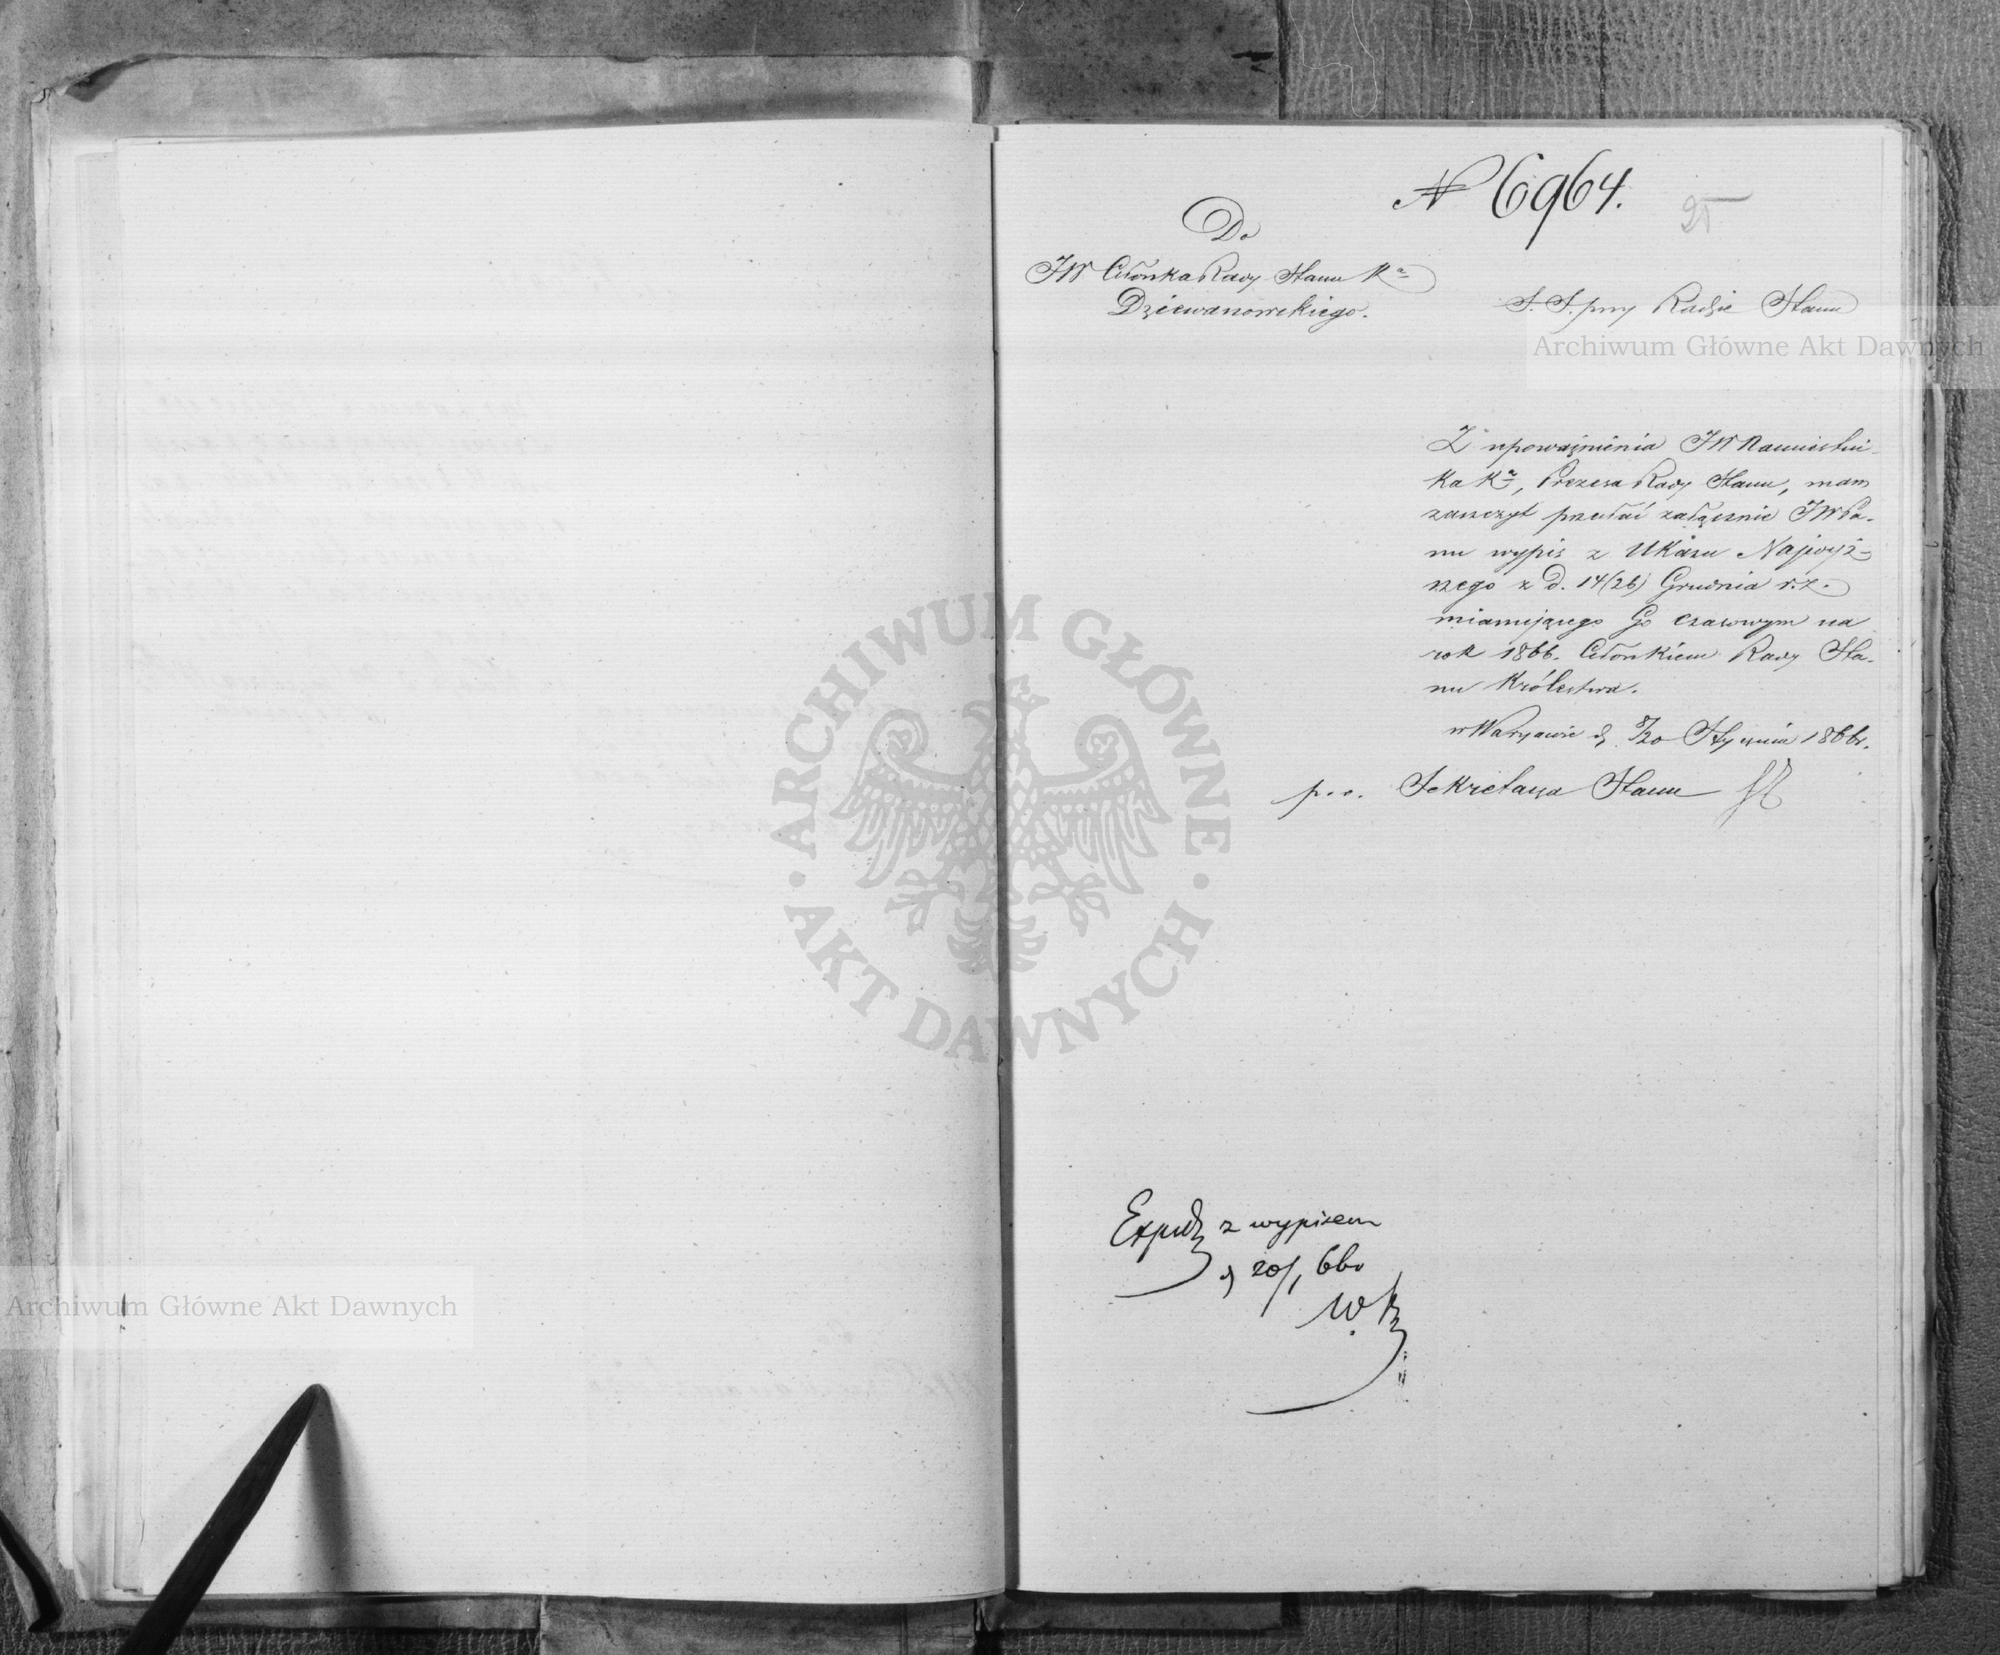 № 6964.
25
Do
JW Członka Rady Stanu Ka
Dziewanowskiego.
S. S. przy Radzie Stanu
Archiwum Główne Akt Dawnych
Z upoważnienia JW Namiestni-
ka Ka, Prezesa Rady Stanu, mam
zaszczyt przesłać załącznie JWPa-
nu wypis z Ukazu Najwyż-
szego z d. 14(26) Grudnia r. z.
mianującego Go czasowym na
rok 1866. Członkiem Rady Sta-
nu Królestwa.
w Warszawie d. 8/20 Stycznia 1866 r.
p. o. Sekretarza Stanu
ARCHIWUM GŁÓWNE
· AKT DAWNYCH ·
z wypisem
d 20/1 66 r
Archiwum Główne Akt Dawnych